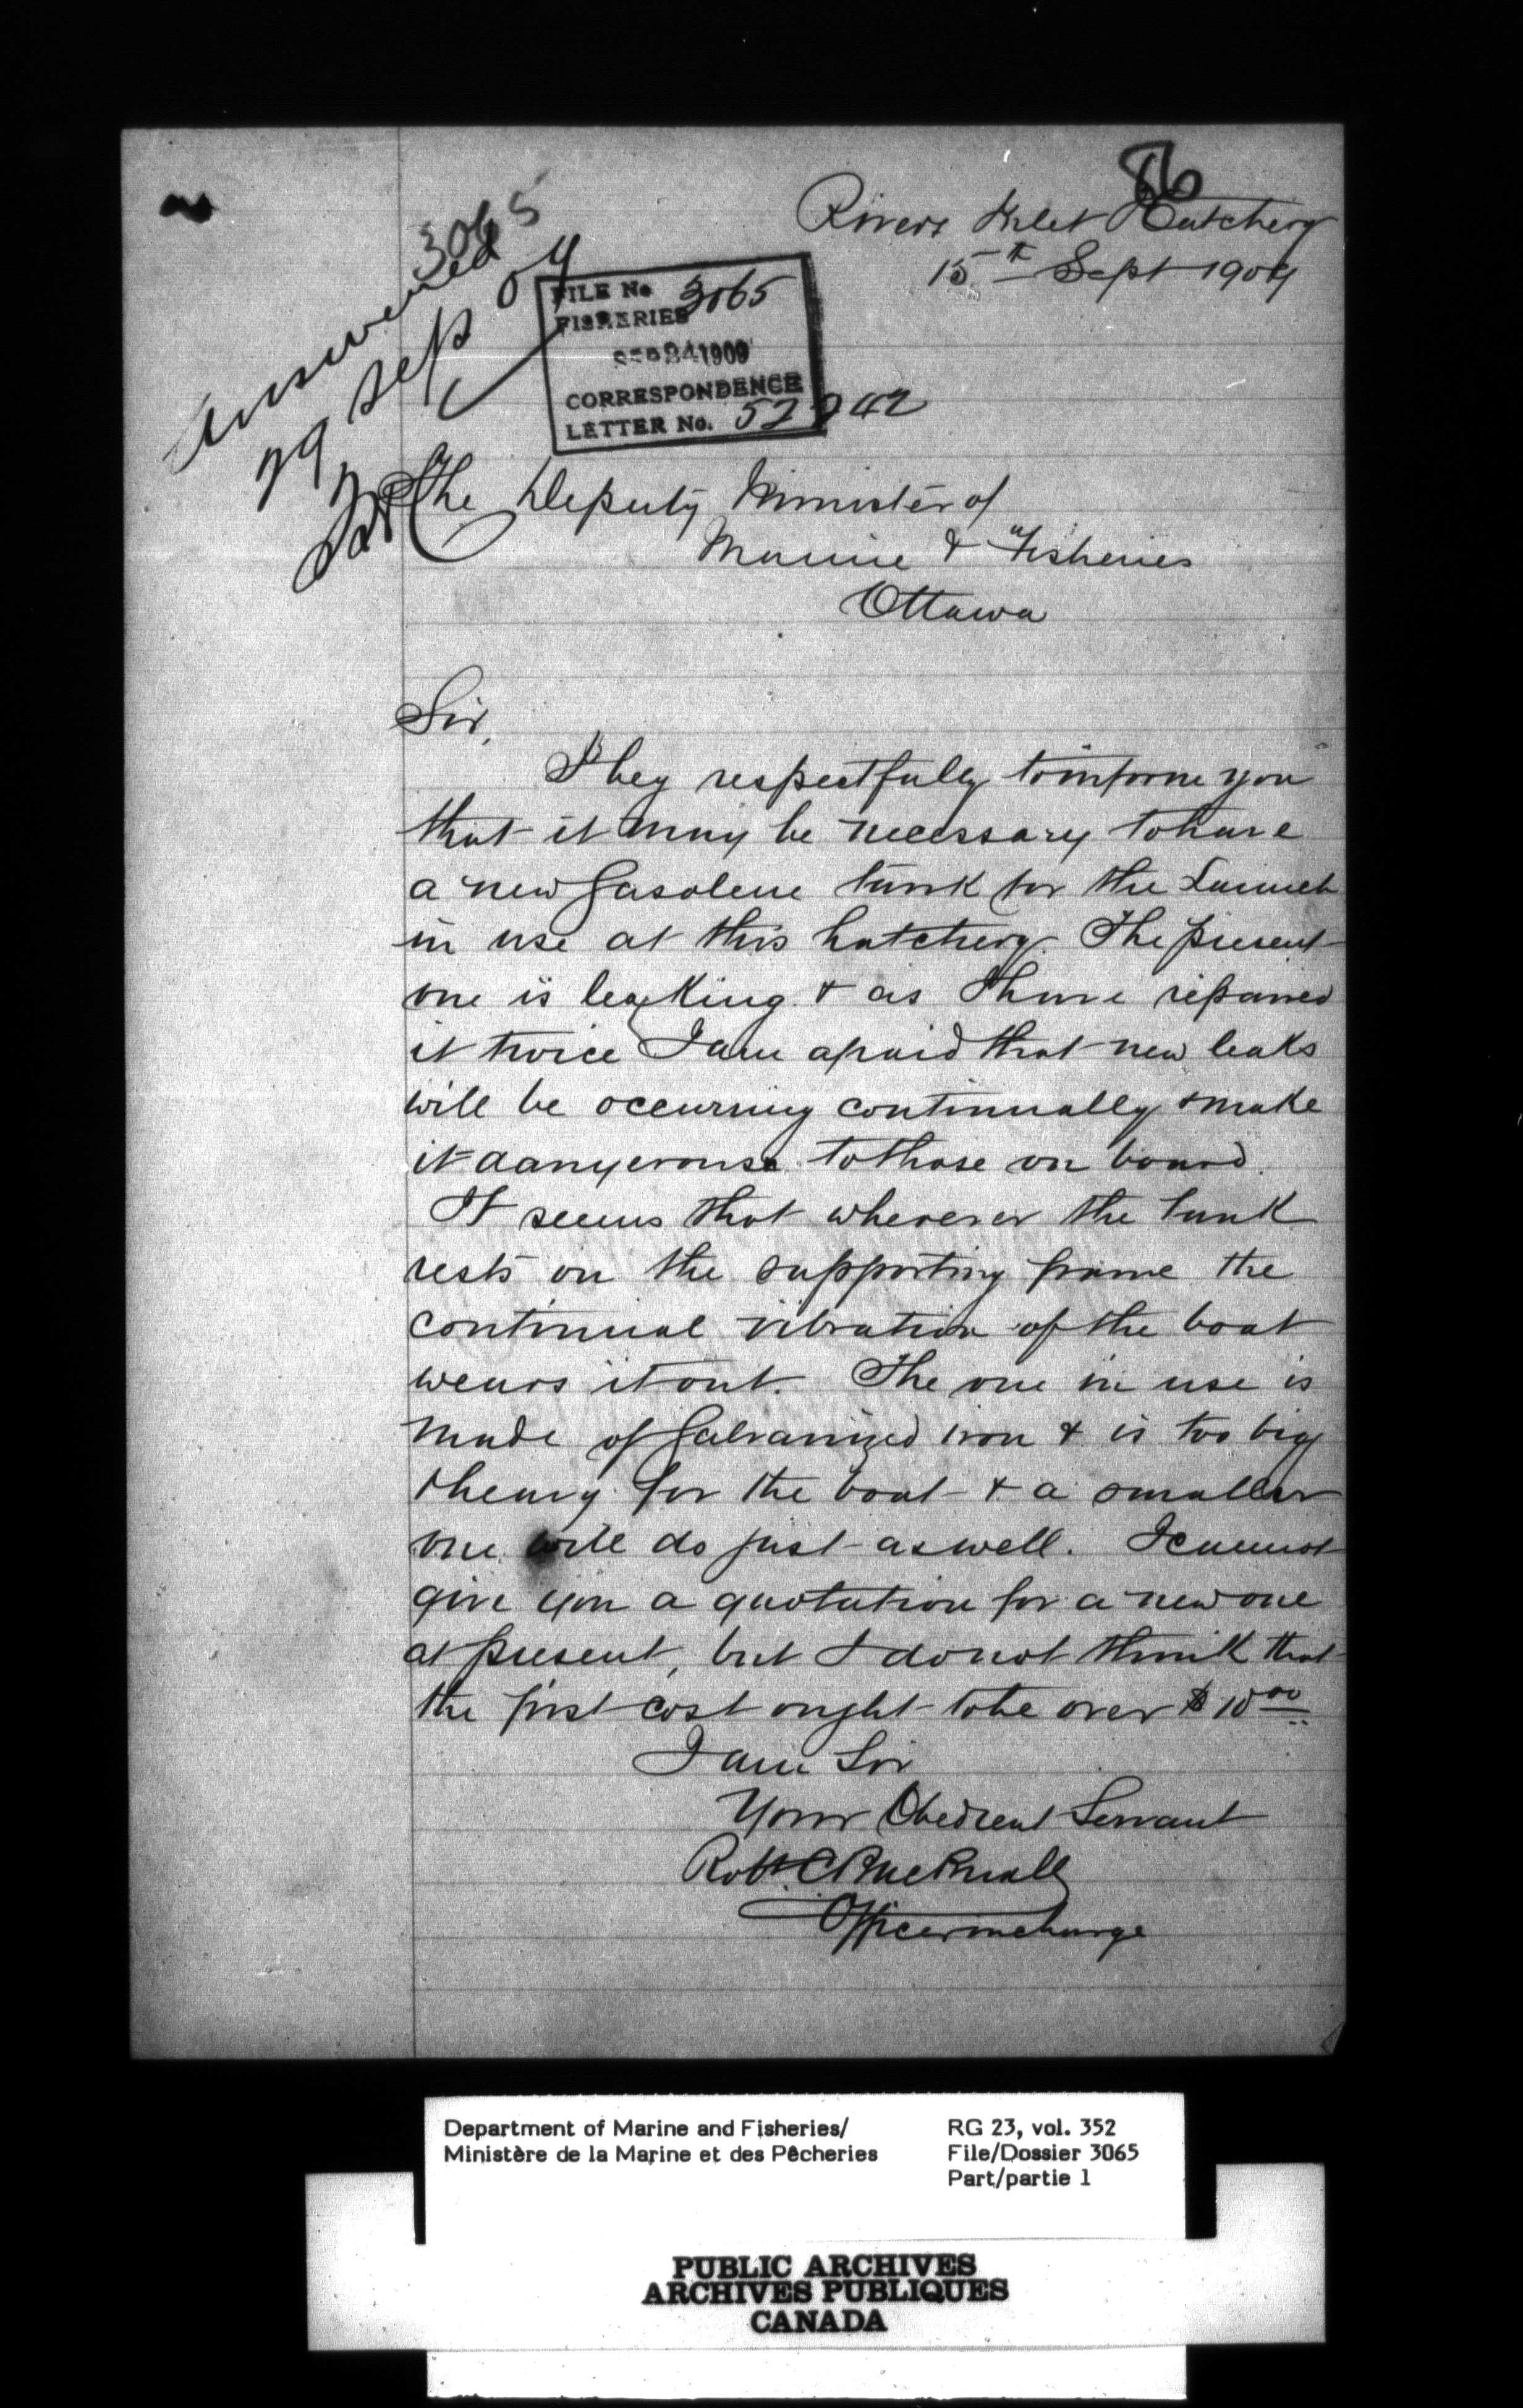 86
Rivers Inlet Hatchery
15th Sept 1909
3065
Answered
29 Sep 09
FILE No. 3065
FISHERIES
SEP 24 1909
CORRESPONDENCE
LETTER No.
The Deputy Minister of
Marine & Fisheries
Ottawa
Sir,
I beg respectfully to inform you
that it may be necessary to have
a new Gasolene tank for the Launch
in use at this hatchery. The present
one is leaking & as I have repaired
it twice I am afraid that new leaks
will be occurring continually & make
it dangerouse to those on board.
It seems that wherever the tank
rests on the supporting frame the
continual vibration of the boat
wears it out. The one in use is
made of Galvanized iron & is too big
& heavy for the boat & a smaller
one will do just as well. I cannot
give you a quotation for a new one
at present, but I do not think that
the first cost ought to be over $10.00
I am Sir
Your Obedient Servant
Robt. C
Officer in charge
Department of Marine and Fisheries/
Ministère de la Marine et des Pêcheries
RG 23, vol. 352
File/Dossier 3065
Part/partie 1
PUBLIC ARCHIVES
ARCHIVES PUBLIQUES
CANADA